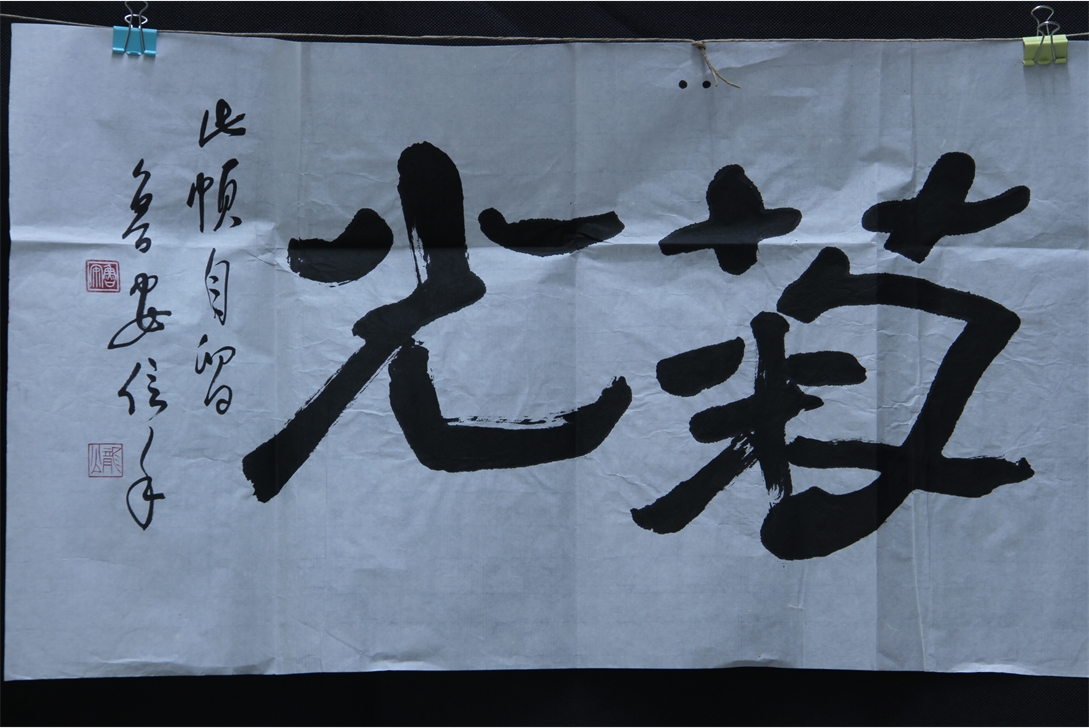 菊光
此幀自留
魯 信手